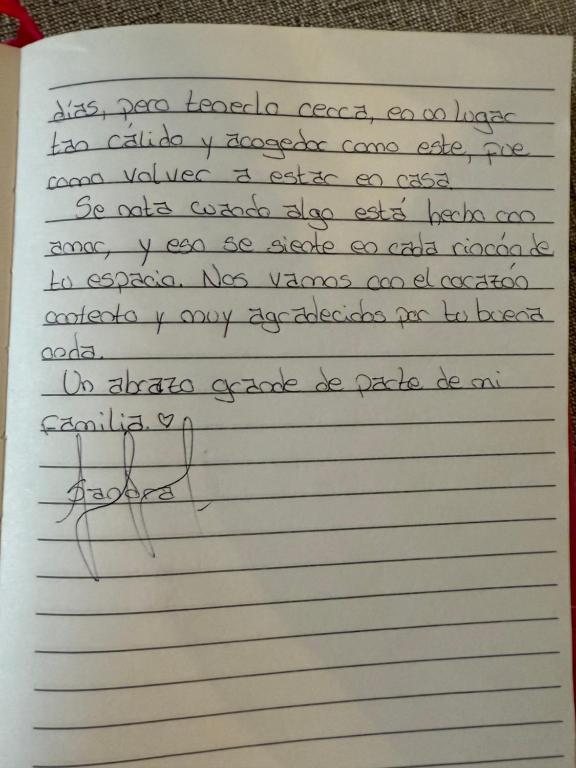 días, pero tenerlo cerca, en un lugar
tan cálido y acogedor como este, fue
como volver a estar en casa.
Se nota cuando algo está hecho con
amor, y eso se siente en cada rincón de
tu espacio. Nos vamos con el corazón
contento y muy agradecidos por tu buena
onda.
Un abrazo grande de parte de mi
familia. ♡